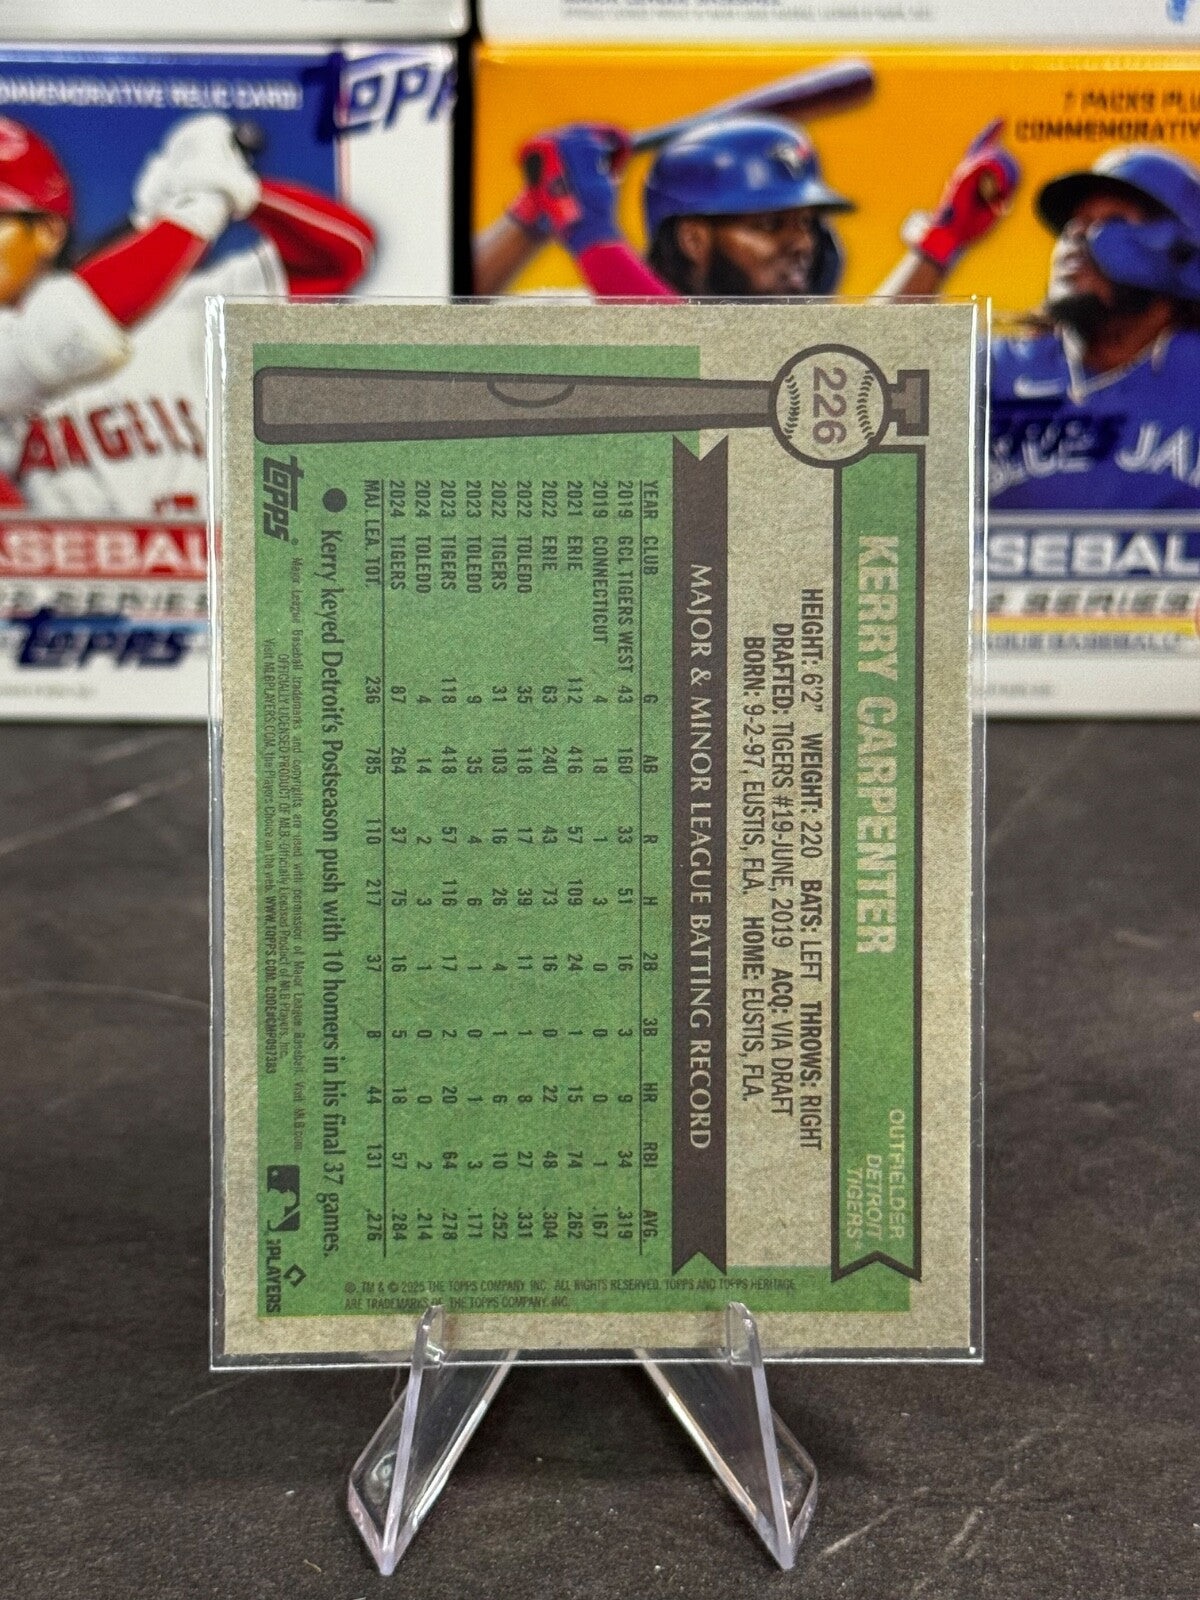 MMEMORATIVE RELIC CARD!
TOPP
7 PACKS PLU
COMMEMORATIV
ANGELS
BLUE JA
SEBAL
SEBAL
SERIES
topps
226
KERRY CARPENTER
OUTFIELDER
DETROIT
TIGERS
HEIGHT: 6'2" WEIGHT: 220 BATS: LEFT THROWS: RIGHT
DRAFTED: TIGERS #19-JUNE, 2019 ACQ: VIA DRAFT
BORN: 9-2-97, EUSTIS, FLA. HOME: EUSTIS, FLA.
MAJOR & MINOR LEAGUE BATTING RECORD
YEAR CLUB G AB R H 2B 3B HR RBI AVG.
2019 GCL TIGERS WEST 43 160 33 51 16 3 9 34 .319
2019 CONNECTICUT 4 18 1 3 0 0 0 1 .167
2021 ERIE 112 416 57 109 24 1 15 74 .262
2022 ERIE 63 240 43 73 16 0 22 48 .304
2022 TOLEDO 35 118 17 39 11 1 8 27 .331
2022 TIGERS 31 103 16 26 4 1 6 10 .252
2023 TOLEDO 9 35 4 6 1 0 1 3 .171
2023 TIGERS 118 418 57 116 17 2 20 64 .278
2024 TOLEDO 4 14 2 3 1 0 0 2 .214
2024 TIGERS 87 264 37 75 16 5 18 57 .284
MAJ. LEA. TOT. 236 785 110 217 37 8 44 131 .276
● Kerry keyed Detroit's Postseason push with 10 homers in his final 37 games.
topps
Major League Baseball trademarks and copyrights are used with permission of Major League Baseball. Visit MLB.com.
OFFICIALLY LICENSED PRODUCT OF MLB Players, Inc.
Visit MLBPLAYERS.COM, the Players Choice on the web. WWW.TOPPS.COM. CODE#CMP097383
MLB PLAYERS
®, TM & © 2025 THE TOPPS COMPANY, INC. ALL RIGHTS RESERVED. TOPPS AND TOPPS HERITAGE
ARE TRADEMARKS OF THE TOPPS COMPANY, INC.